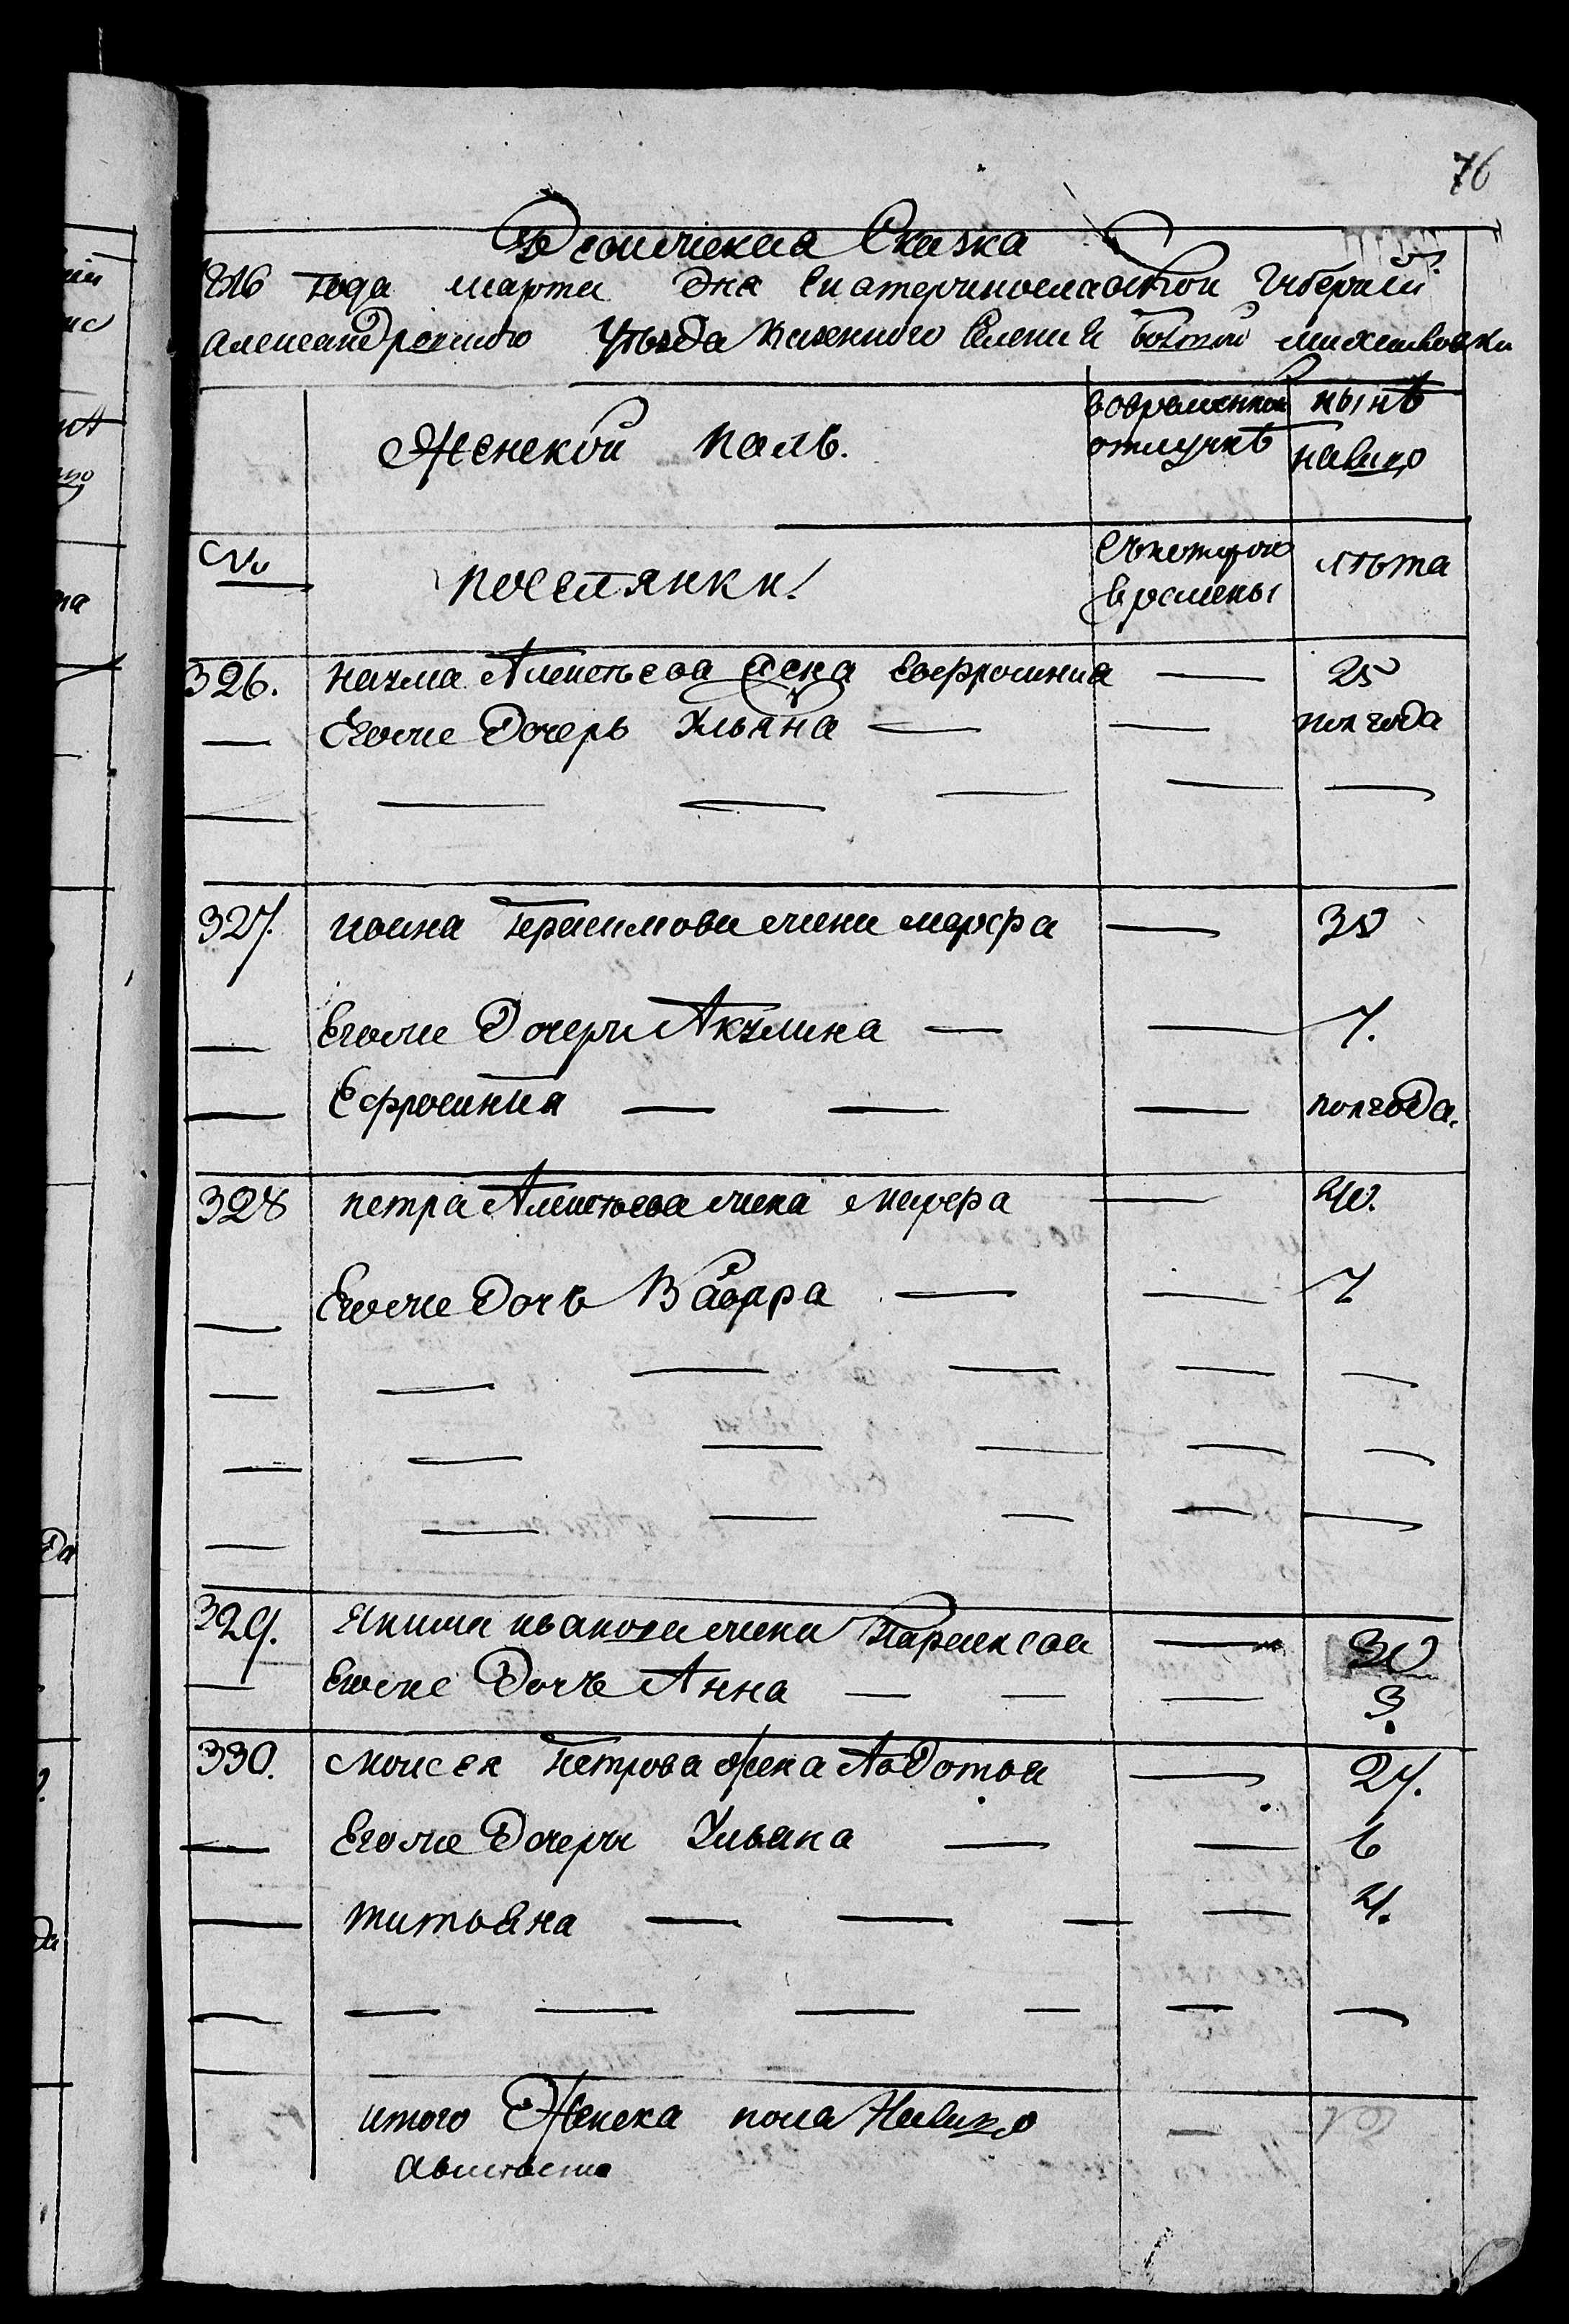 76
Ревижская Сказка
1816 года марта дня Екатеринославской Губернии
Александровского Уезда казенного Селения Михайловки
Женской полъ.
вовременной отлучкѣ
нынѣ налицо
№
поселянки.
Съкоторого времены
лѣта
326. Наума Алексѣева жена Евфросиния — 25
— Егоже Дочерь Ульяна — — полгода
327. ивана Герасимова жена марфа — 30
— Егоже Дочери Акулина — — 7.
— Ефросиния — — — полгода.
328 петра Алексѣева жена Марфа — 40.
— Егоже Дочь Варвара — — 7
329. Якима иванова жена Параскева — 30
— Егоже Дочь Анна — — — 3.
330. Моисея Петрова жена Авдотья — 27.
— Егоже Дочери Ульяна — — 6
— татьяна — — — — 4.
итого Женска пола Налицо —